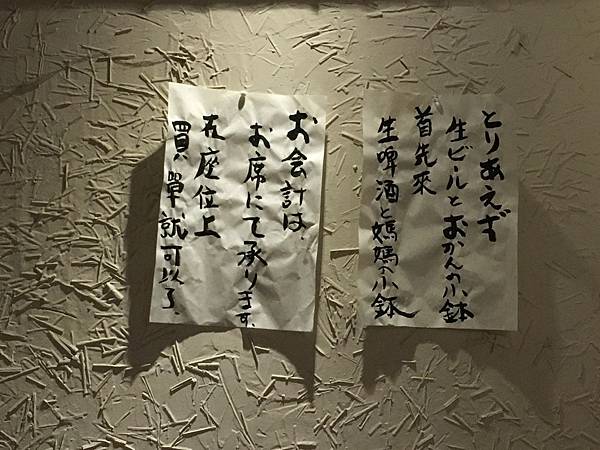 とりあえず
生ビールとおかんの小鉢
首先來
生啤酒と媽媽の小鉢
お会計は、
お席にて承ります。
在座位上
買單就可以了